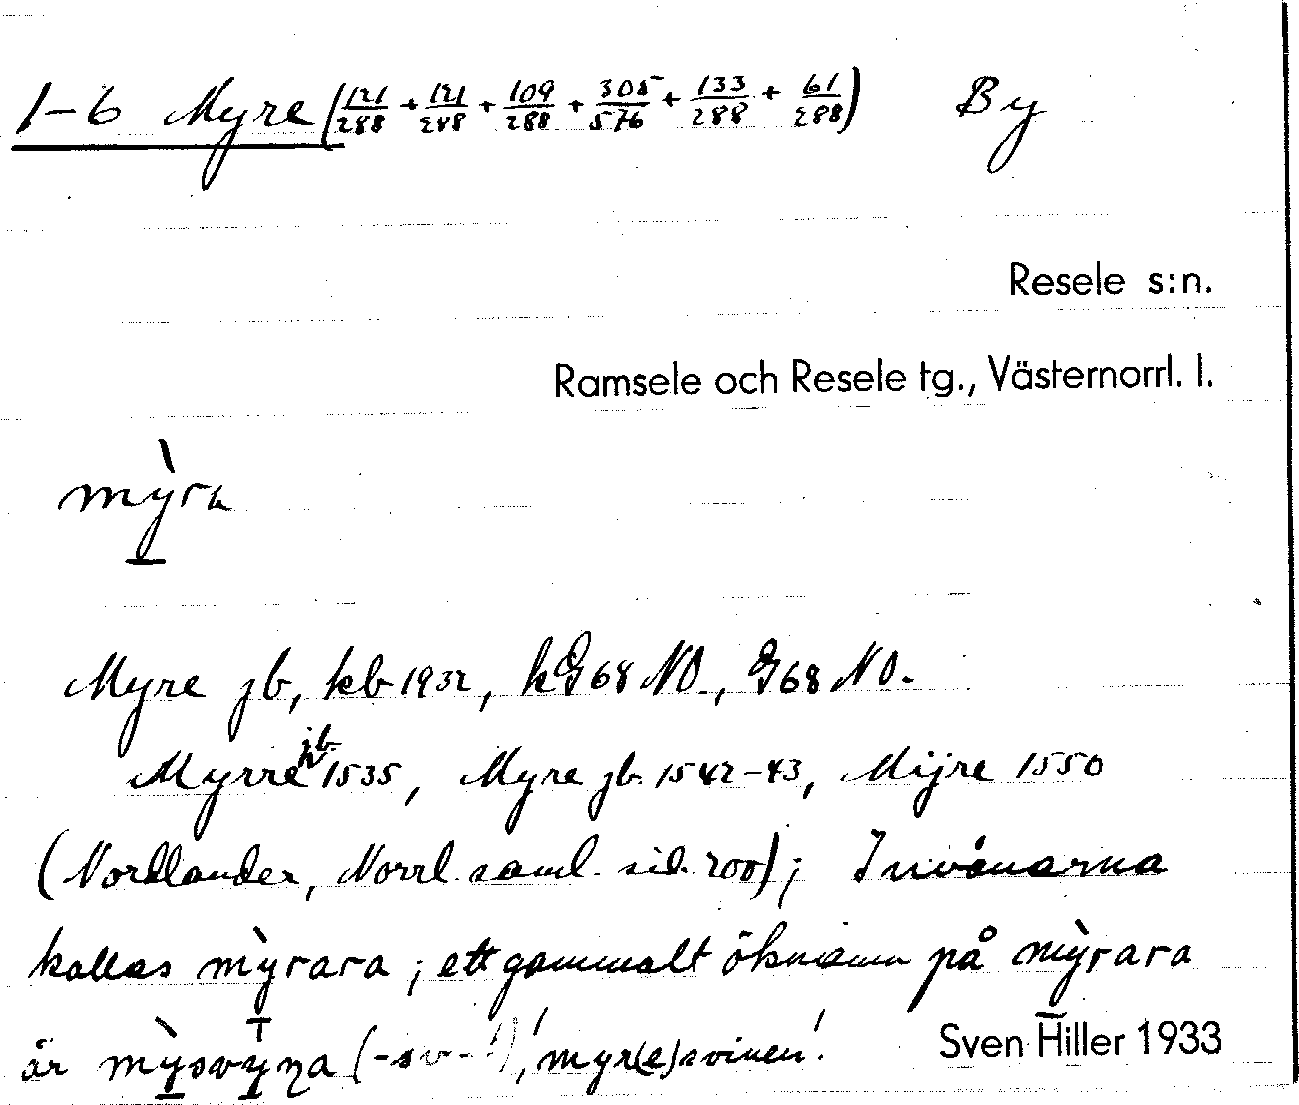 1-6 Myre (121/288 + 121/288 + 109/288 + 305/576 + 133/288 + 61/288) By
Resele s:n.
Ramsele och Resele tg., Västernorrl. l.
mỳra
Myre jb, kb 1932, kG68 NO., G68 NO.
Myrre jb. 1535, Myre jb. 1542-43, Mijre 1550
(Nordlander, Norrl. saml. sid. 200); Invånarna
kallas mỳrara; ett gammalt öknamn på mỳrara
är mỳsvyna (-sv- ) 'myr(e)svinen'.
Sven Hiller 1933